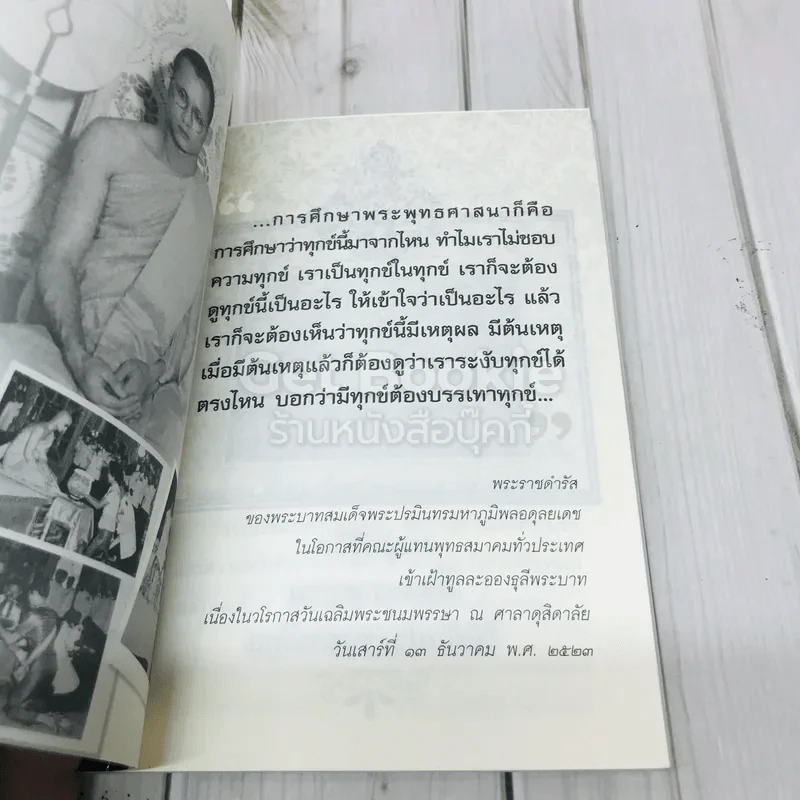 “
...การศึกษาพระพุทธศาสนาก็คือ
การศึกษาว่าทุกข์นี้มาจากไหน ทำไมเราไม่ชอบ
ความทุกข์ เราเป็นทุกข์ในทุกข์ เราก็จะต้อง
ดูทุกข์นี้เป็นอะไร ให้เข้าใจว่าเป็นอะไร แล้ว
เราก็จะต้องเห็นว่าทุกข์นี้มีเหตุผล มีต้นเหตุ
เมื่อมีต้นเหตุแล้วก็ต้องดูว่าเราระงับทุกข์ได้
Get Bookie
ตรงไหน บอกว่ามีทุกข์ต้องบรรเทาทุกข์...
ร้านหนังสือบุ๊คกี้
”
พระราชดำรัส
ของพระบาทสมเด็จพระปรมินทรมหาภูมิพลอดุลยเดช
ในโอกาสที่คณะผู้แทนพุทธสมาคมทั่วประเทศ
เข้าเฝ้าทูลละอองธุลีพระบาท
เนื่องในวโรกาสวันเฉลิมพระชนมพรรษา ณ ศาลาดุสิดาลัย
วันเสาร์ที่ ๑๓ ธันวาคม พ.ศ. ๒๕๒๓